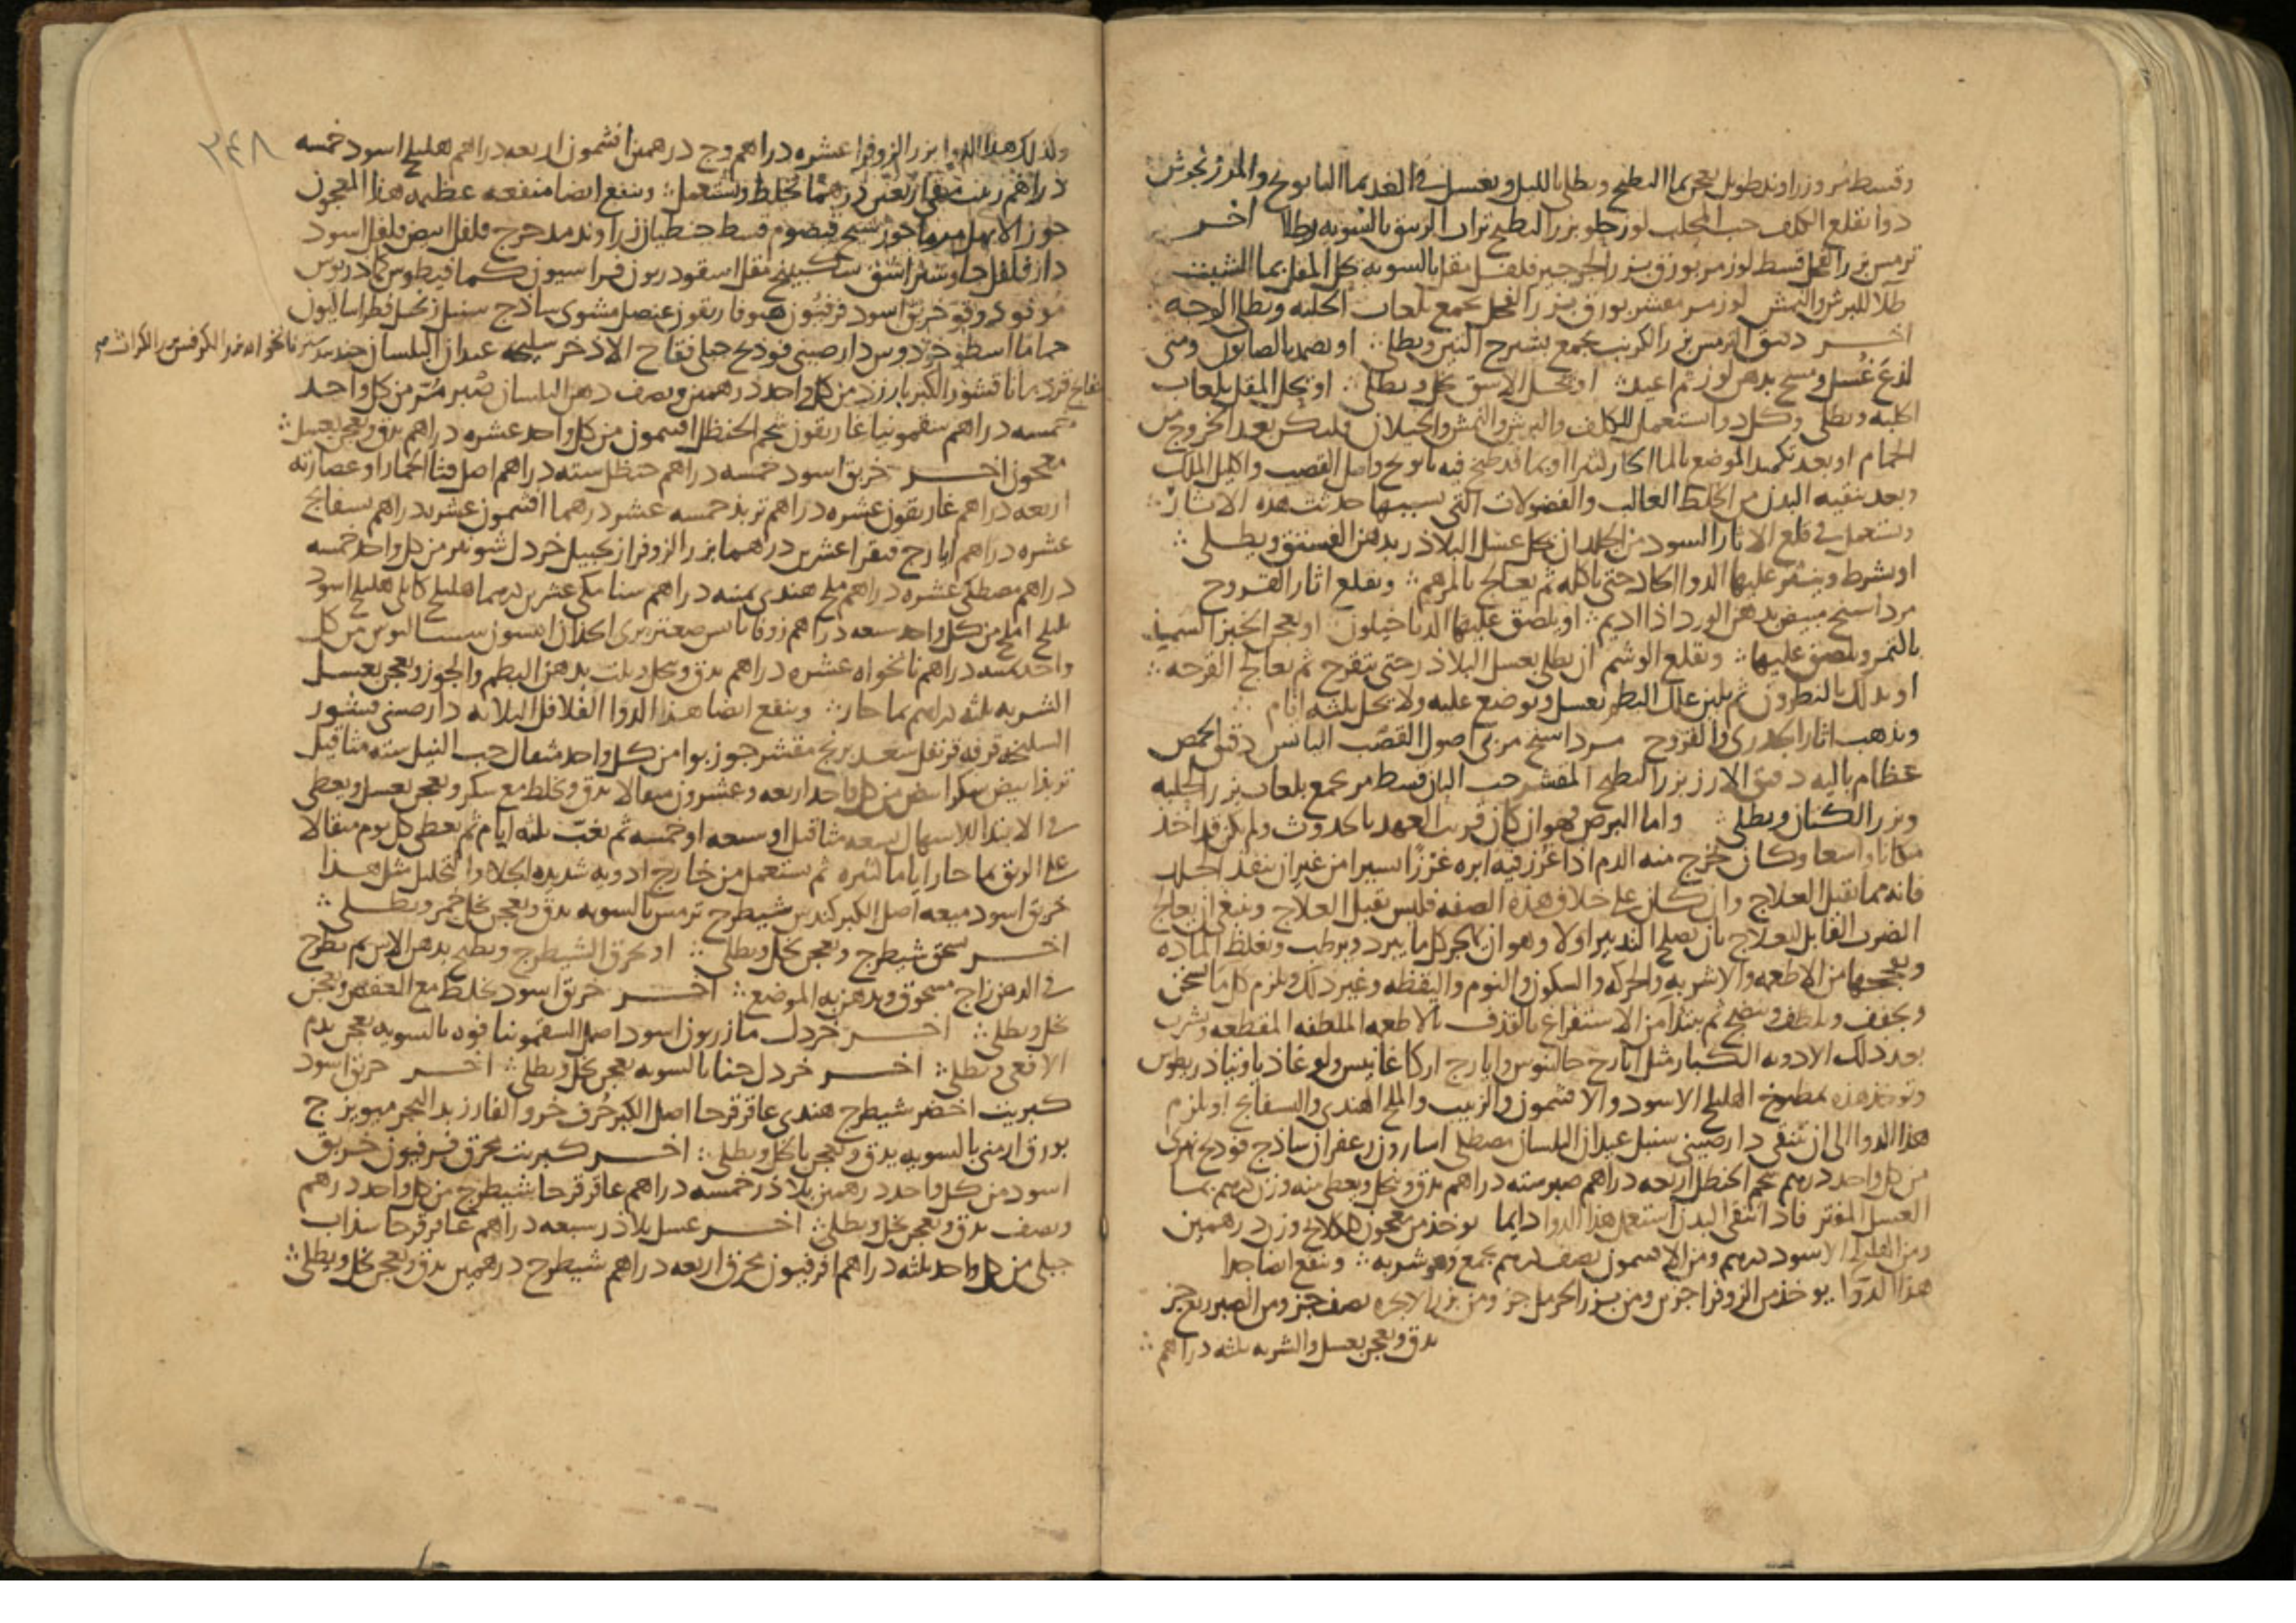 وقسط مر وزراوند طويل يعجن بما البطيخ ويطلى بالليل ويغسل في الغد بما البابونج والمرزنجوش
دوا يقلع الكلف حب المحلب لوز حلو بزر البطيخ تراب الزيبق بالسويه يطلا اخر
ترمس بزر الفجل قسط لوز مر بورق بزر الجرجير فلفل مقل بالسويه يحل المقل بما
طلا للبرش والنمش لوز مر مقشر بورق بزر الفجل يجمع بلعاب الحلبه ويطلا الوجه
اخر دقيق الترمس بزر الكرنب يجمع بشيرج التين ويطلى او يضمد بالصابون ومتى
لذع غسل ومسح بدهن لوز ثم اعيد او يحل الاشق بخل ويطلى او يحل المقل بلعاب
الحلبه ويطلى وكل دوا يستعمل للكلف والبرش والنمش والخيلان فليكن بعد الخروج من
الحمام او بعد تكميد الموضع بالما الحار كثيرا او بما قد طبخ فيه بابونج واصل القصب واكليل الملك
وبعد تنقيه البدن من الخلط الغالب والفضولات التي بسببها حدثت هذه الاثار
ويستعمل في قلع الاثار السود من الجلد ان يحل عسل البلاذر بدهن الفستق ويطلى
او يشرط وينثر عليها الدوا الحاد حتى ياكله ثم يعالج بالمرهم ويقلع اثار القروح
مرداسنج مبيض بدهن الورد اذا اديم او يلصق عليها الدياخيلون او يعجن الخبز السميذ
بالتمر ويلصق عليها ويقلع الوشم ان يطلى بعسل البلاذر حتى يتقرح ثم يعالج القرحه
او يدلك بالنطرون ثم يلين علك البطم بعسل ويوضع عليه ولا يحل ثلثه ايام
ويذهب اثار الجدري والقروح مرداسنج مربى اصول القصب اليابس دقيق الحمص
عظام باليه دقيق الارز بزر البطيخ المقشر حب البان قسط مر يجمع بلعاب بزر الحلبه
وبزر الكتان ويطلى واما البرص فهو ان كان قريب العهد بالحدوث ولم يكن قد اخذ
مكانا واسعا وكان يخرج منه الدم اذا غرز فيه ابره غرزا يسيرا من غير ان ينفذ الجلد
فانه مما يقبل العلاج وان كان على خلاف هذه الصفه فليس يقبل العلاج وينبغي ان يعالج
الضرب القابل للعلاج بان يصلح التدبير اولا وهو ان يهجر كل ما يبرد ويرطب ويغلظ الماده
ويفججها من الاطعمه والاشربه والحركه والسكون والنوم واليقظه وغير ذلك ويلزم كل ما يسخن
ويجفف ويلطف وينضج ثم يبتدا من الاستفراغ بالقذف بالاطعمه الملطفه المقطعه ويشرب
بعد ذلك الادويه الكبار مثل ايارج جالينوس وايارج اركاغانيس ولوغاذيا وتياذريطوس
وتوخذ هذه بمطبوخ الهليلج الاسود والافتيمون والزبيب والملح الهندي والبسفايج او يلزم
هذا الدوا الى ان تنقي دارصيني سنبل عيدان البلسان مصطكى اسارون زعفران ساذج فودنج نهري
من كل واحد درهم شحم الحنظل اربعه دراهم صبر سته دراهم يدق وينخل ويعطى منه وزن درهم بما
العسل المفتر فاذا تنقى البدن استعمل هذا الدوا دايما يوخذ من معجون وزن درهمين
ومن الهليلج الاسود درهم ومن الافتيمون نصف درهم يجمع وهو شربه وينفع ايضا جدا
هذا الدوا يوخذ من الزوفرا جزين ومن بزر الحرمل جز ومن بزر الانجره نصف جز ومن الصبر ربع جز
يدق ويعجن بعسل والشربه ثلثه دراهم
٣٤٨
وكذلك هذا الدوا بزر الزوفرا عشره دراهم وج درهمين افتيمون اربعه دراهم هليلج اسود خمسه
دراهم زبيب منقى اربعين درهما يخلط ويستعمل وينفع ايضا منفعه عظيمه هذا المعجون
جوز الابهل شيح قيصوم قسط جنطيان زراوند مدحرج فلفل ابيض فلفل اسود
دارفلفل جاوشير اشق سكبينج مقل اسقورديون فراسيون كمافيطوس كمادريوس
مو فو دوقو خربق اسود فرفيون هيوفاريقون عنصل مشوي ساذج سنبل زنجبيل فطراساليون
حماما اسطوخودوس دارصيني فودنج جبلي فقاح الاذخر سليخه عيدان البلسان جندبيدستر نانخواه بزر الكرفس بزر الكراث
قردمانا قشور الكبر بارزد من كل واحد درهمين ونصف دهن البلسان صبر مر من كل واحد
خمسه دراهم سقمونيا غاريقون شحم الحنظل افتيمون من كل واحد عشره دراهم يدق ويعجن بعسل
معجون اخر خربق اسود خمسه دراهم حنظل سته دراهم اصل قثا الحمار او عصارته
اربعه دراهم غاريقون عشره دراهم تربذ خمسه عشر درهما افتيمون عشره دراهم بسفايج
عشره دراهم ايارج فيقرا عشرين درهما بزر الزوفرا زنجبيل خردل شونيز من كل واحد خمسه
دراهم مصطكى عشره دراهم ملح هندي ثمنه دراهم سنا مكي عشرين درهما هليلج كابلي هليلج اسود
بليلج املج من كل واحد سبعه دراهم زوفا يابس صعتر بري انيسون سيساليوس من كل
واحد دراهم نانخواه عشره دراهم يدق وينخل ويلت بدهن البطم والجوز ويعجن بعسل
الشربه ثلثه دراهم بما حار وينفع ايضا هذا الدوا الفلافل الثلاثه دارصيني قشور
السليخه قرفه قرنفل سعد برنج مقشر جوز بوا من كل واحد مثقال حب النيل سته مثاقيل
تربذ ابيض سكر ابيض من كل واحد اربعه وعشرون مثقالا يدق ويخلط مع سكر ويعجن بعسل ويعطى
في الابتدا للاسهال تسعه مثاقيل او سبعه او خمسه ثم يغب ثلثه ايام ثم يعطى كل يوم مثقالا
على الريق بما حار اياما كثيره ثم يستعمل من خارج ادويه شديده الجلا والتحليل مثل هذا
خربق اسود ميعه اصل الكبر كندس شيطرج ترمس بالسويه يدق ويعجن بخل خمر ويطلى
اخر يسحق شيطرج ويعجن بخل ويطلى او يحرق الشيطرج ويطبخ بدهن الاس ثم يطرح
في الدهن زاج مسحوق ويدهن به الموضع اخر خربق اسود يخلط مع العفص ويعجن
بخل ويطلى اخر خردل مازريون اسود اصل السقمونيا فوه بالسويه يعجن بدم
الافعى ويطلى اخر خردل حنا بالسويه يعجن بخل ويطلى اخر خربق اسود
كبريت اخضر شيطرج هندي عاقرقرحا اصل الكبر حرف خرو الفار زبد البحر ميويزج
بورق ارمني بالسويه يدق ويعجن بالخل ويطلى اخر كبريت محرق فرفيون خربق
اسود من كل واحد درهمين بلاذر خمسه دراهم عاقرقرحا شيطرج من كل واحد درهم
ونصف يدق ويعجن بخل ويطلى اخر عسل بلاذر سبعه دراهم عاقرقرحا سذاب
جبلي من كل واحد ثلثه دراهم افرفيون محرق اربعه دراهم شيطرج درهمين يدق ويعجن بخل ويطلى